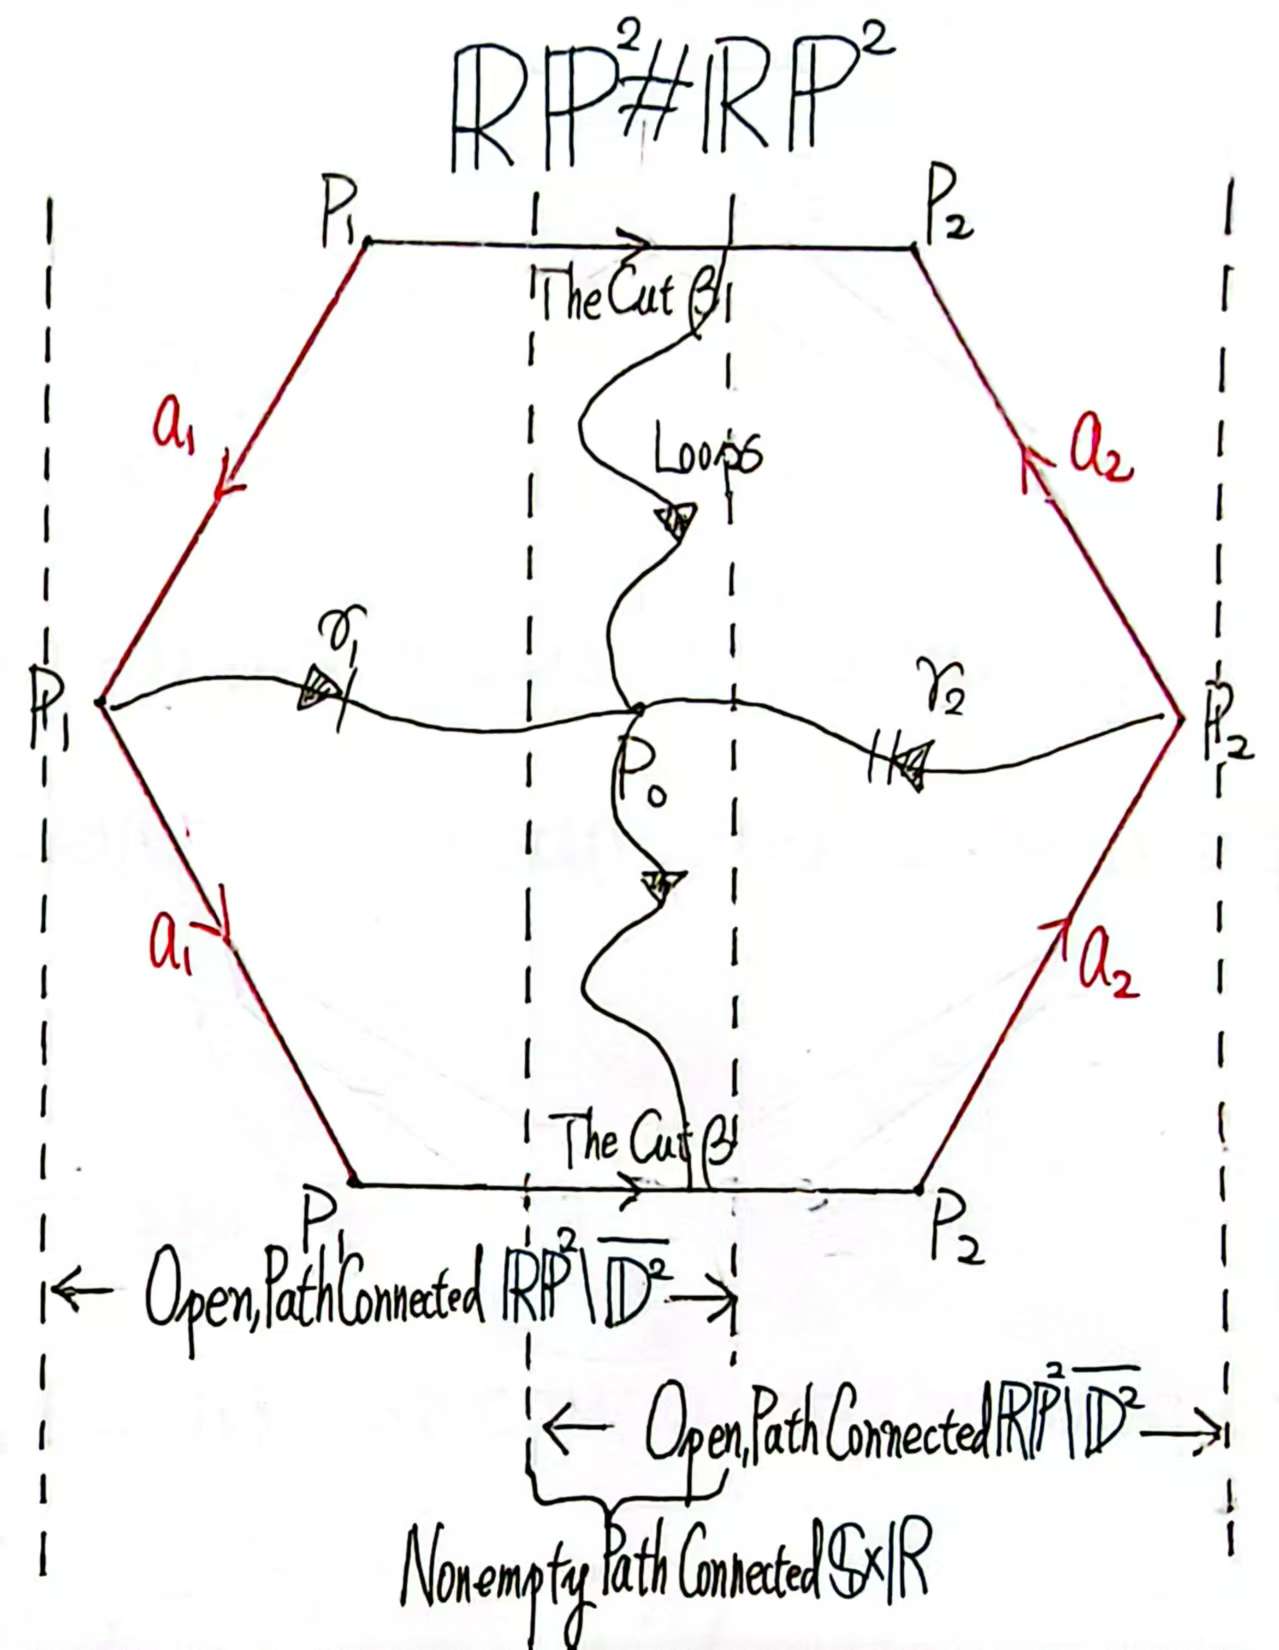 ℝP²#ℝP²
P₁
P₂
The Cut β
a₁
a₂
Loops
γ₁
γ₂
P₁
P₂
P₀
a₁
a₂
The Cut β
P₁
P₂
Open, Path Connected ℝP²\D̅²̅
Open, Path Connected ℝP²\D̅²̅
Nonempty Path Connected 𝕊×ℝ